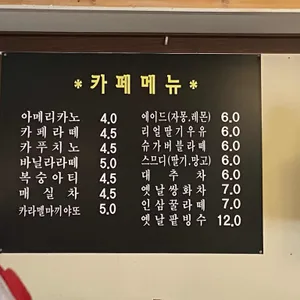 *카페메뉴*
아메리카노 4.0
카페라떼 4.5
카푸치노 4.5
바닐라라떼 5.0
복숭아티 4.5
매실차 4.5
카라멜마끼아또 5.0
에이드(자몽,레몬) 6.0
리얼딸기우유 6.0
슈가버블라떼 6.0
스므디(딸기,망고) 6.0
대추차 6.0
옛날쌍화차 7.0
인삼꿀라떼 7.0
옛날팥빙수 12.0